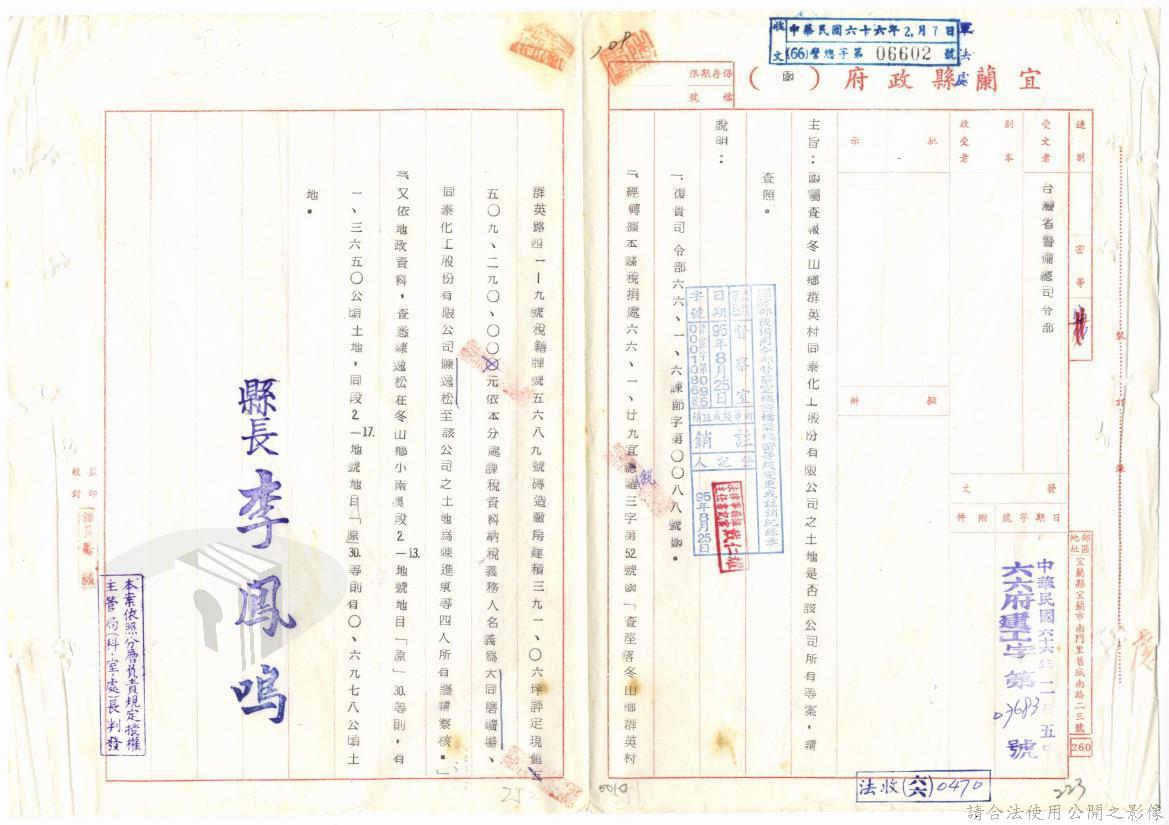 收文
中華民國六十六年2月7日
(66)警總字第 06602 號
軍法處
宜蘭縣政府(函)
保存期限
檔號
速別
密等
受文者
台灣省警備總司令部
副本
收受者
批示
擬辦
發文
日期字號附件
中華民國六十六年二月五日
六六府建工字第03683號
郵區
地址
宜蘭縣宜蘭市南門里舊城南路二三號
260
裝訂線
主旨:函囑查報冬山鄉群英村同泰化工股份有限公司之土地是否該公司所有等案,請
查照。
說明:
一、復貴司令部六六、一、六諫節字第〇〇八八號函。
二、經轉據本縣稅捐處六六、一、廿九宜稅羅三字第52號函「查座落冬山鄉群英村
群英路四一-九號稅籍牌號五六八九號磚造廠房建積三九一、〇六坪評定現值五
五〇九、二九〇、〇〇元依本分處課稅資料納稅義務人名義為大同磨礦場、
同泰化工股份有限公司陳逸松至該公司之土地為陳進東等四人所有請察核。」
三、又依地政資料,查悉陳逸松在冬山鄉小南澳段2-13.地號地目「原」30.等則,有
一、三六五〇公頃土地,同段2-17.地號地目「原」30.等則有〇、六九七八公頃土
地。
縣長李鳳鳴
監印
校對
本案依照分層負責規定授權
主管局(科.室.處)長判發
國防部後備司令部督察室機密檔案機密等級變更或註銷紀錄章
督察室
日期
95年8月25日
字號
0001086號
註銷
登記人
95年8月25日
法收(66)0470
108
223
0010
請合法使用公開之影像